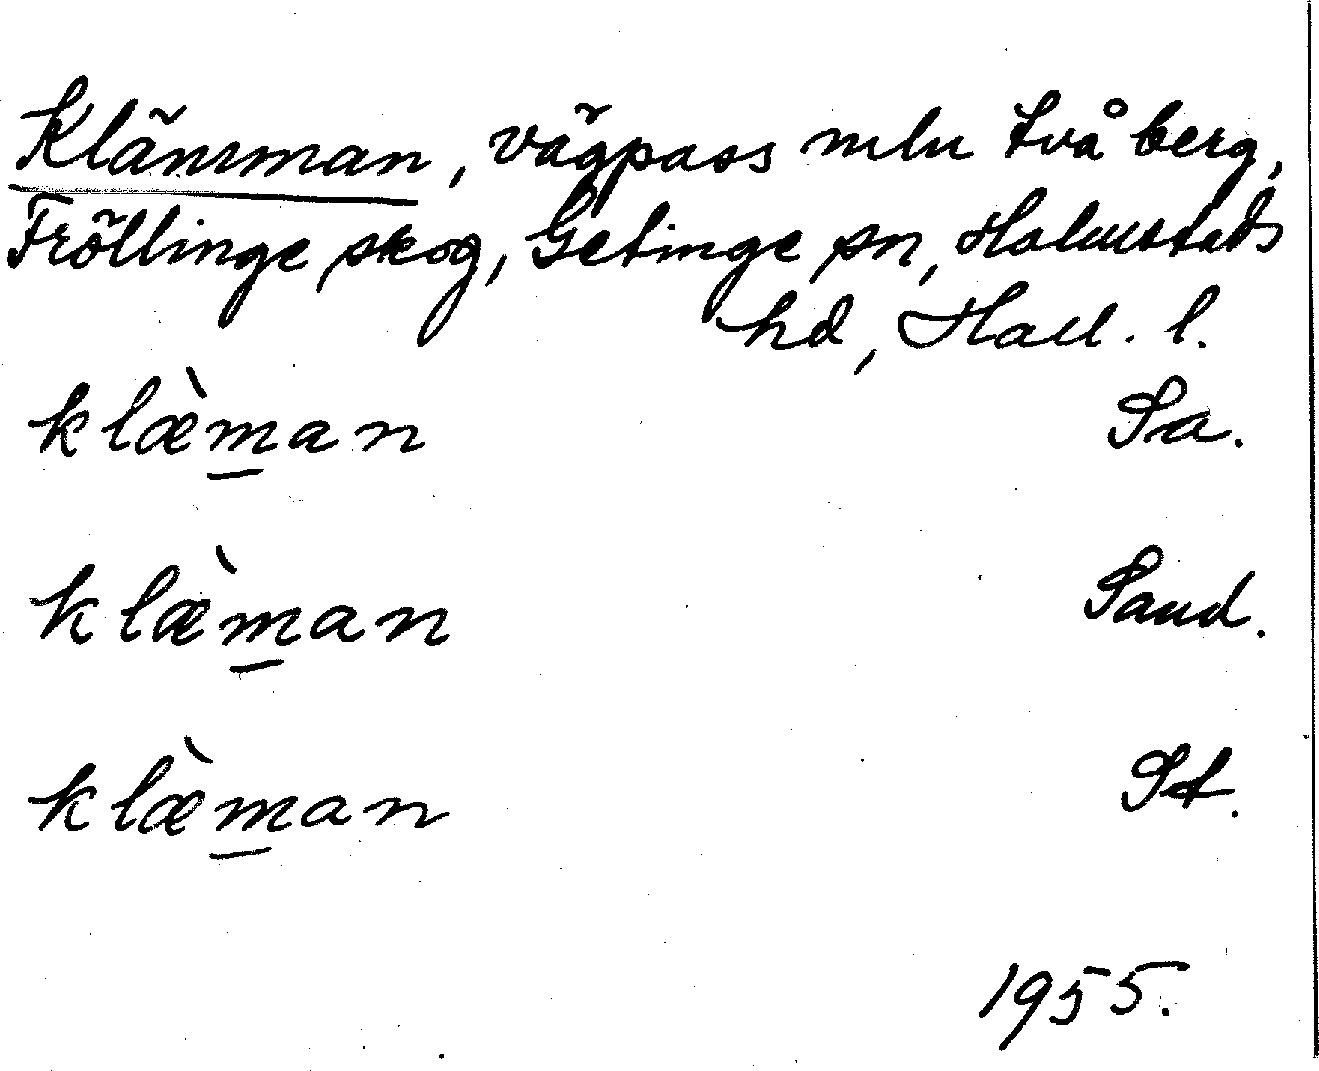 Klämman, vägpass mln två berg,
Fröllinge skog, Getinge sn, Halmstads
hd, Hall. l.
klæ̀m̲an Sa.
klæ̀m̲an Sand.
klæ̀m̲an St.
1955.